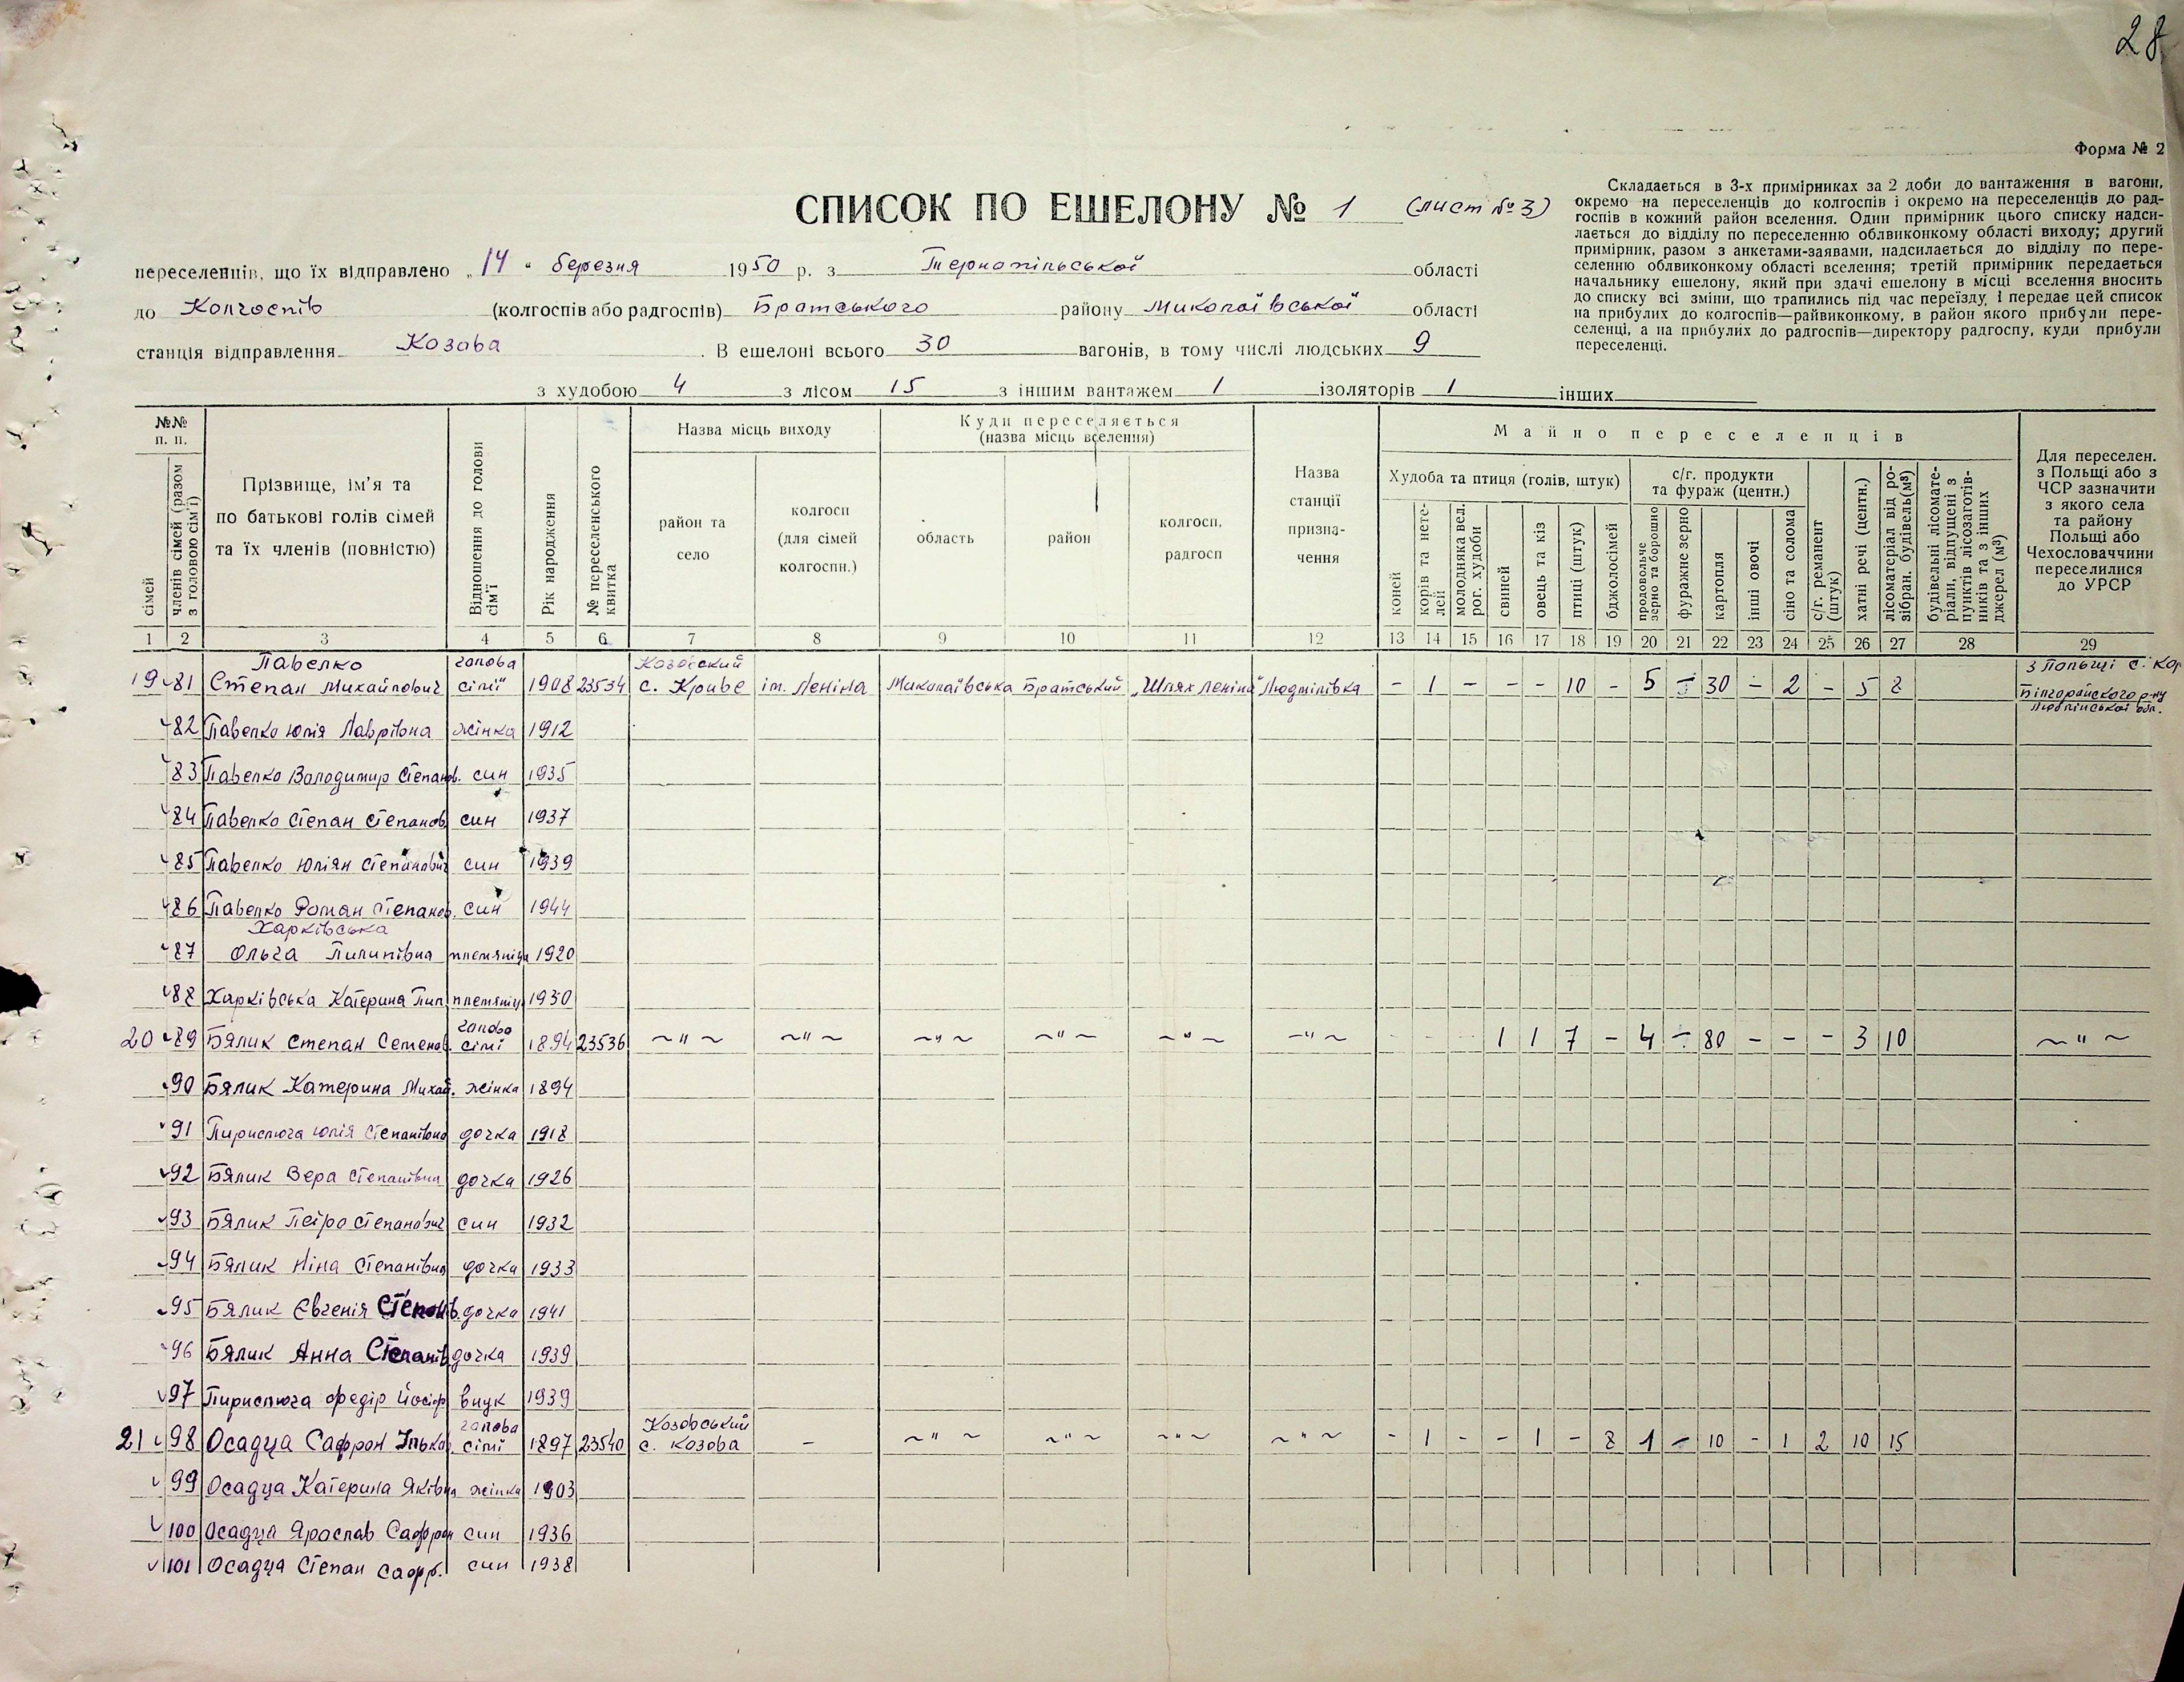 28
Форма № 2
СПИСОК ПО ЕШЕЛОНУ № 1 (лист № 3)
переселенців, що їх відправлено „14“ березня 1950 р. з Тернопільської області
до Колгоспів (колгоспів або радгоспів) Братського району Миколаївської області
станція відправлення Козова. В ешелоні всього 30 вагонів, в тому числі людських 9
з худобою 4 з лісом 15 з іншим вантажем 1 ізоляторів 1 інших
Складається в 3-х примірниках за 2 доби до вантаження в вагони,
окремо на переселенців до колгоспів і окремо на переселенців до рад-
госпів в кожний район вселення. Один примірник цього списку надси-
лається до відділу по переселенню облвиконкому області виходу; другий
примірник, разом з анкетами-заявами, надсилається до відділу по пере-
селенню облвиконкому області вселення; третій примірник передається
начальнику ешелону, який при здачі ешелону в місці вселення вносить
до списку всі зміни, що трапились під час переїзду, і передає цей список
на прибулих до колгоспів—райвиконкому, в район якого прибули пере-
селенці, а на прибулих до радгоспів—директору радгоспу, куди прибули
переселенці.
№№ п. п.
сімей
членів сімей (разом з головою сім'ї)
Прізвище, ім'я та
по батькові голів сімей
та їх членів (повністю)
Відношення до голови сім'ї
Рік народження
№ переселенського квитка
Назва місць виходу
район та село
колгосп (для сімей колгоспн.)
Куди переселяється
(назва місць вселення)
область
район
колгосп, радгосп
Назва станції призна- чення
Майно переселенців
Худоба та птиця (голів, штук)
коней
корів та нете- лей
молодняка вел. рог. худоби
свиней
овець та кіз
птиці (штук)
бджолосімей
с/г. продукти та фураж (центн.)
продовольче зерно та борошно
фуражне зерно
картопля
інші овочі
сіно та солома
с/г. реманент (штук)
хатні речі (центн.)
лісоматеріал від ро- зібран. будівель(м³)
будівельні лісомате- ріали, відпущені з пунктів лісозаготів- ників та з інших джерел (м³)
Для переселен.
з Польщі або з
ЧСР зазначити
з якого села
та району
Польщі або
Чехословаччини
переселилися
до УРСР
1 2 3 4 5 6 7 8 9 10 11 12 13 14 15 16 17 18 19 20 21 22 23 24 25 26 27 28 29
Павелко голова Козовский з Польщі с.
19 81 Степан Михайлович сімї 1908 23534 с. Криве ім. Леніна Миколаївська Братський „Шлях Леніна“ Людмілівка - 1 - - - 10 - 5 - 30 - 2 - 5 8 Білгорайского р-ну
Люблінської обл.
82 Павелко Юлія Лаврівна жінка 1912
83 Павелко Володимир Степанов. син 1935
84 Павелко Степан Степанов. син 1937
85 Павелко Юліян Степанович син 1939
86 Павелко Роман Степанов. син 1944
Харківська
87 Ольга Пилипівна племяниця 1920
88 Харківська Катерина Пил. племяниця 1930
голова
20 89 Бялик Степан Семенов. сімї 1894 23536 ~"~ ~"~ ~"~ ~"~ ~"~ ~"~ - - - 1 1 7 - 4 - 80 - - - 3 10 ~"~
90 Бялик Катерина Михай. жінка 1894
91 Пирислюга Юлія Степанівна дочка 1918
92 Бялик Вера Степанівна дочка 1926
93 Бялик Петро Степанович син 1932
94 Бялик Ніна Степанівна дочка 1933
95 Бялик Євгенія Степанів. дочка 1941
96 Бялик Анна Степанів. дочка 1939
97 Пирислюга Федір Йосіф. внук 1939
голова Козовський
21 98 Осадца Сафрон Ільков. сімї 1897 23540 с. Козова - ~"~ ~"~ ~"~ ~"~ - 1 - - 1 - 8 1 - 10 - 1 2 10 15
99 Осадца Катерина Яківна жінка 1903
100 Осадца Ярослав Сафрон син 1936
101 Осадца Степан Сафр. син 1938